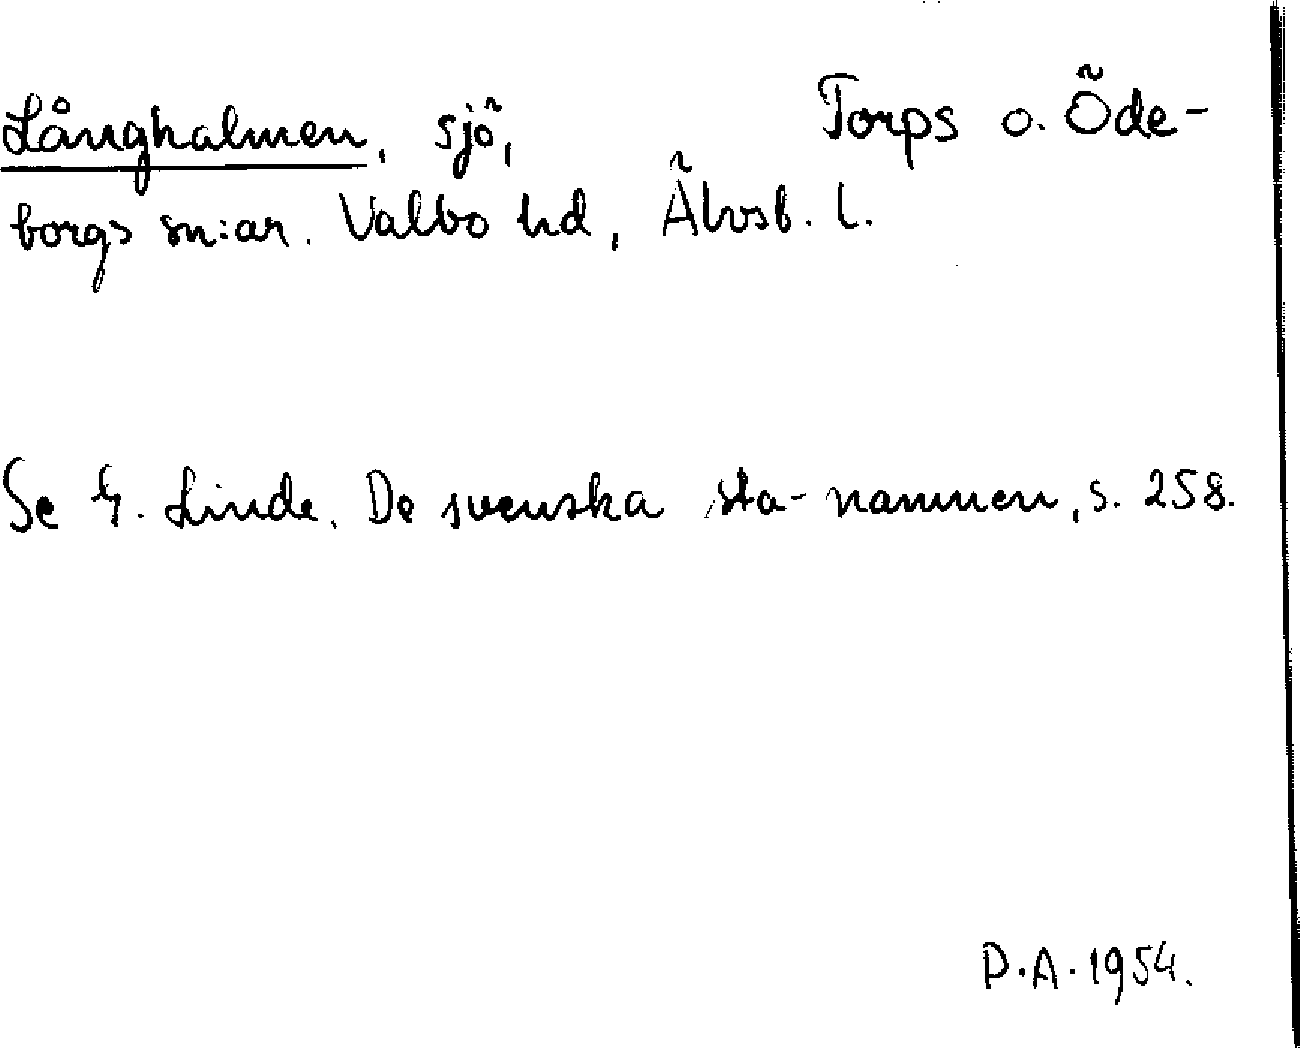 Långhalmen, sjö, Torps o. Öde-
borgs sn:ar. Valbo hd, Älvsb. l.
Se G. Linde. De svenska sta-namnen, s. 258.
P.A. 1954.